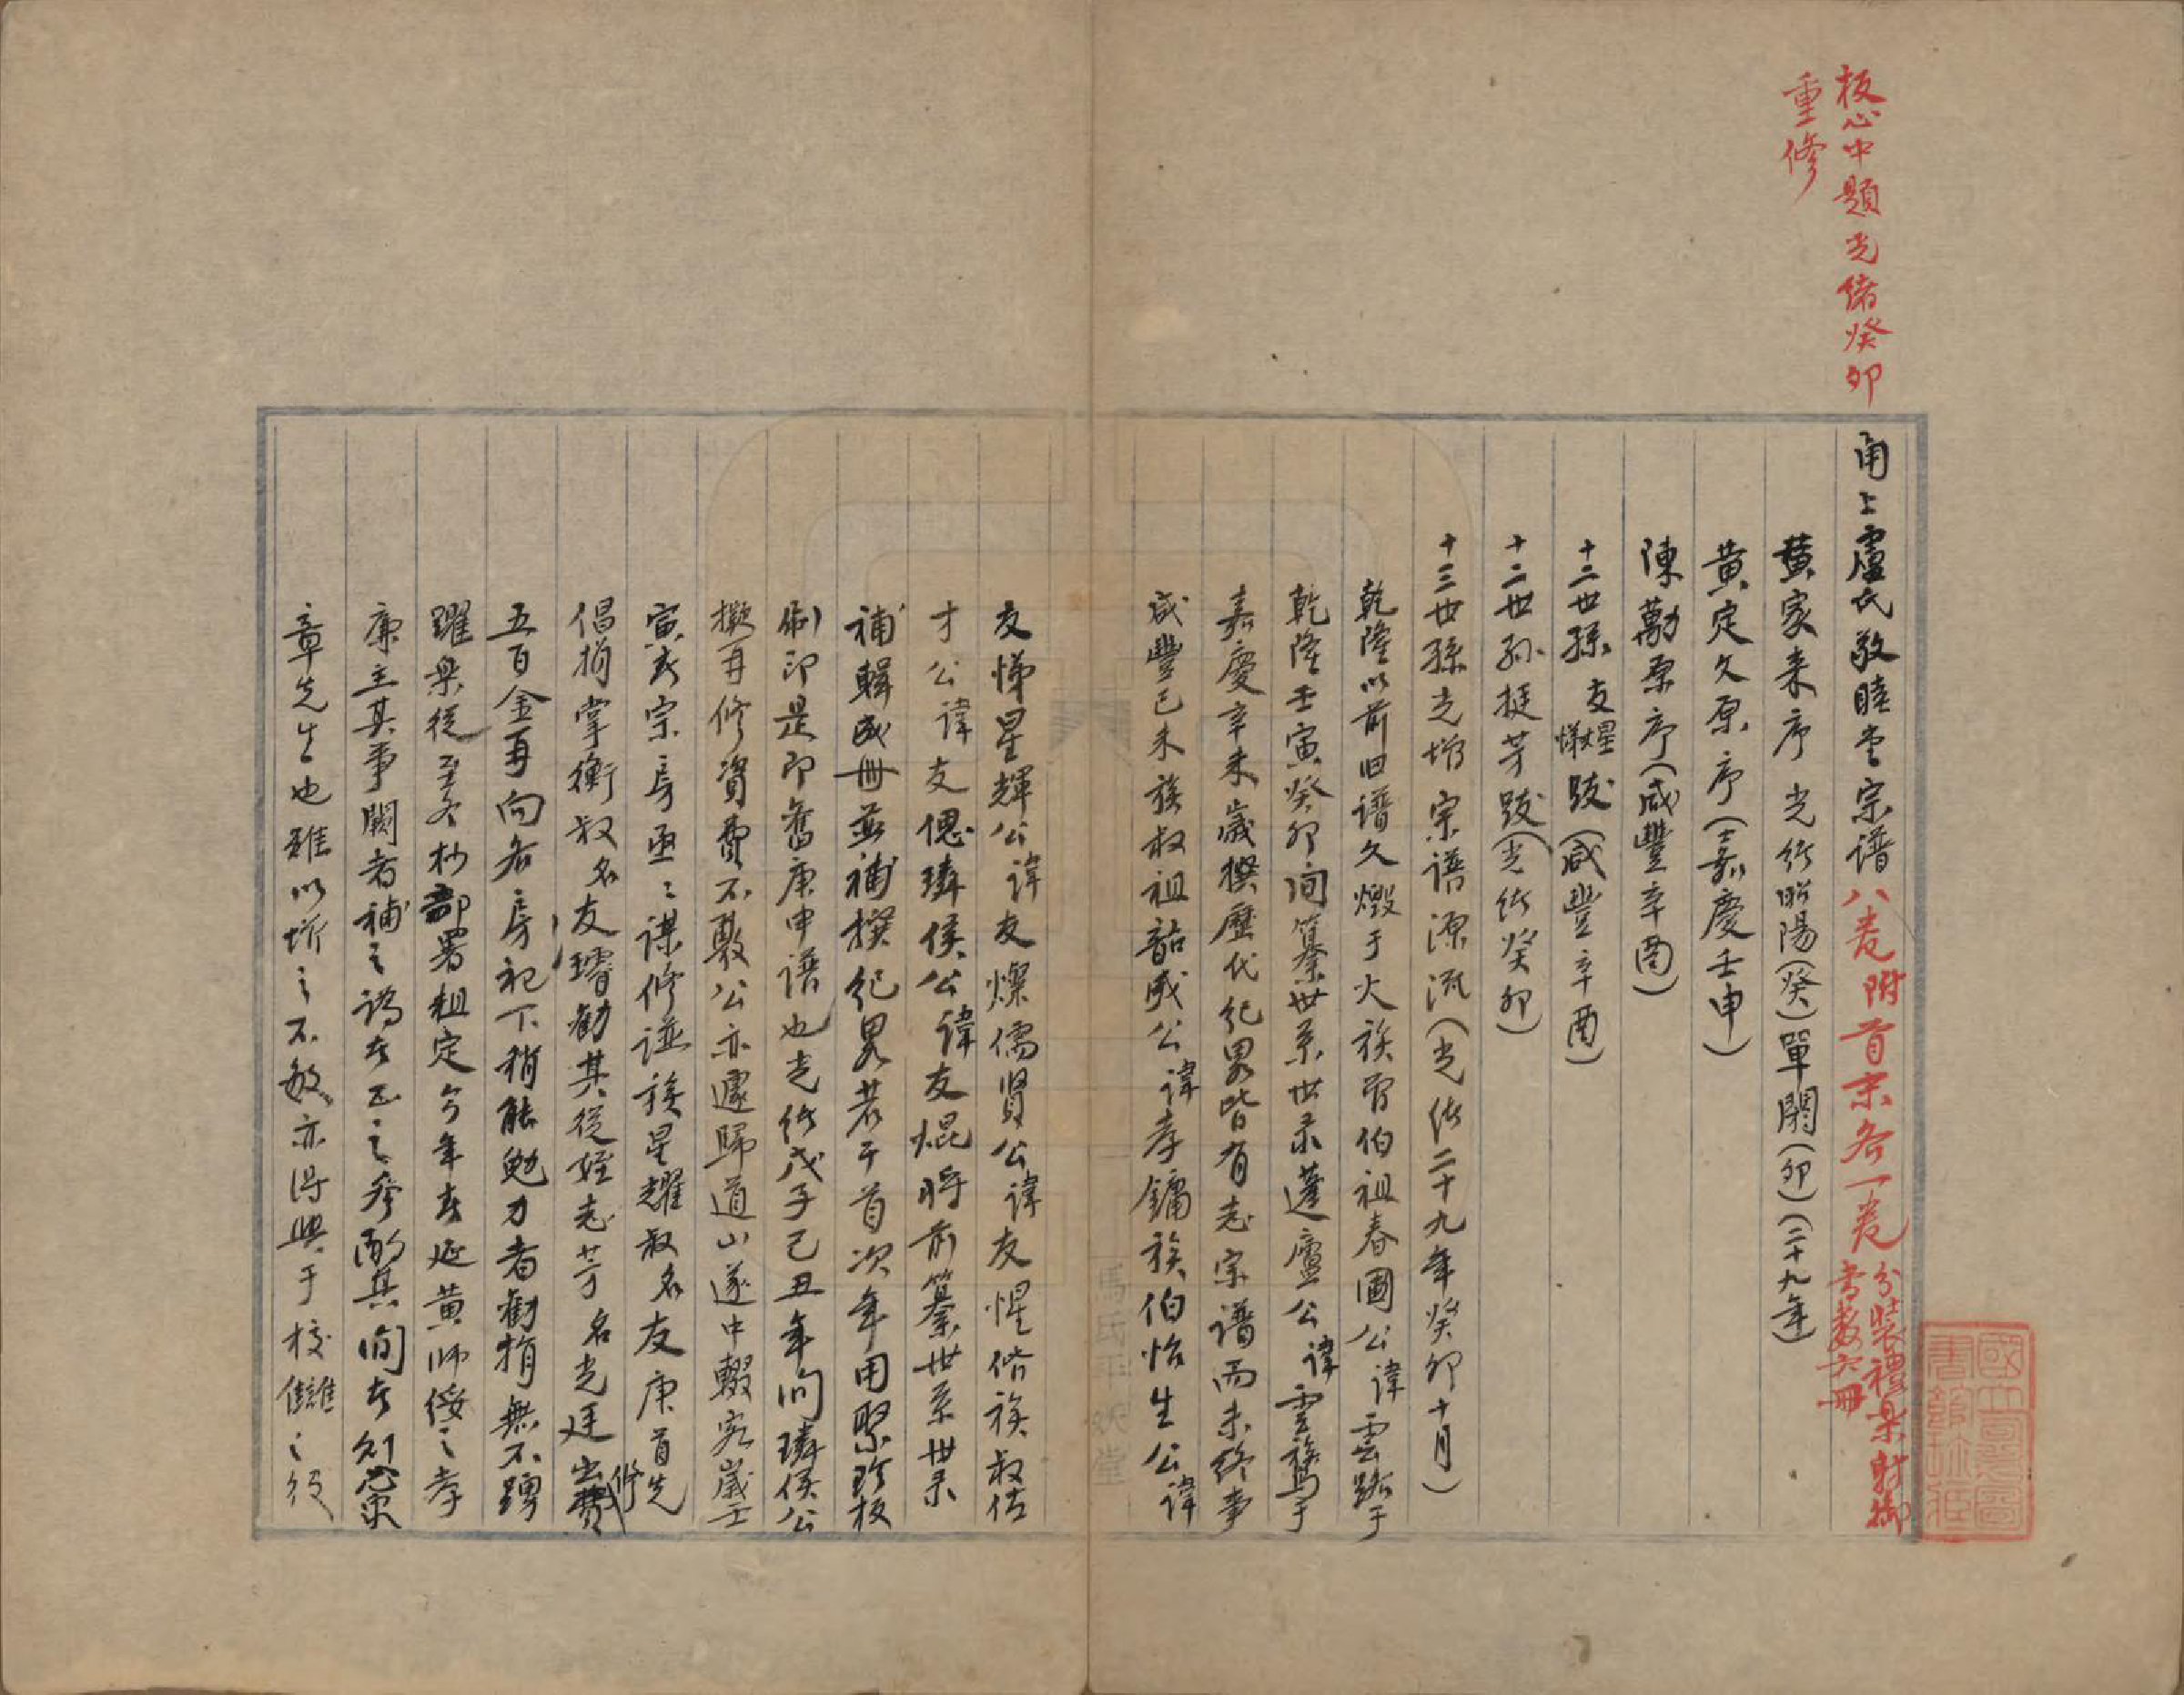 板心中題光緒癸卯
重修
甬上盧氏敬睦堂宗譜八卷附首末各一卷分裝禮樂射御書數六冊
黃家來序光緒昭陽(癸)單閼(卯)(二十九年)
黃定久原序(嘉慶壬申)
陳勱原序(咸豐辛酉)
十二世孫友煋友悌跋(咸豐辛酉)
十二世孙挺芳跋(光緒癸卯)
十三世孫光增宗譜源流(光緒二十九年癸卯十月)
乾隆以前旧譜久燬于火族曾伯祖春圃公諱雲路于
乾隆壬寅癸卯间纂世系世录蘧廬公諱雲鵞于
嘉慶辛未歲撰歷代紀畧皆有志宗譜而未終事
咸豐己未族叔祖韶成公諱孝鏞族伯怡生公諱
友悌星輝公諱友燦儒賢公諱友惺偕族叔佐
才公諱友偲璘侯公諱友焜將前纂世系世录
補輯成冊並補撰紀畧若干首次年用聚珍板
刷印是即舊庚申譜也光緒戊子己丑年间璘侯公
擬再修資費不敷公亦遽歸道山遂中輟客歲壬
寅我宗房亟亟謀修譜族星耀叔名友庚首先
倡捐掌衡叔名友璿勸其從姪志芳名光廷出修費
五百金再向各房祀下稍能勉力者勸捐無不踴
躍樂從至冬杪部署粗定今年春延黃師绥之孝
廉主其事闕者補之譌者正之參酌其间者刘蓉東
章先生也雖以增之不敏亦得與于校讎之役
國立北平圖書館珍藏
馮氏平妖堂